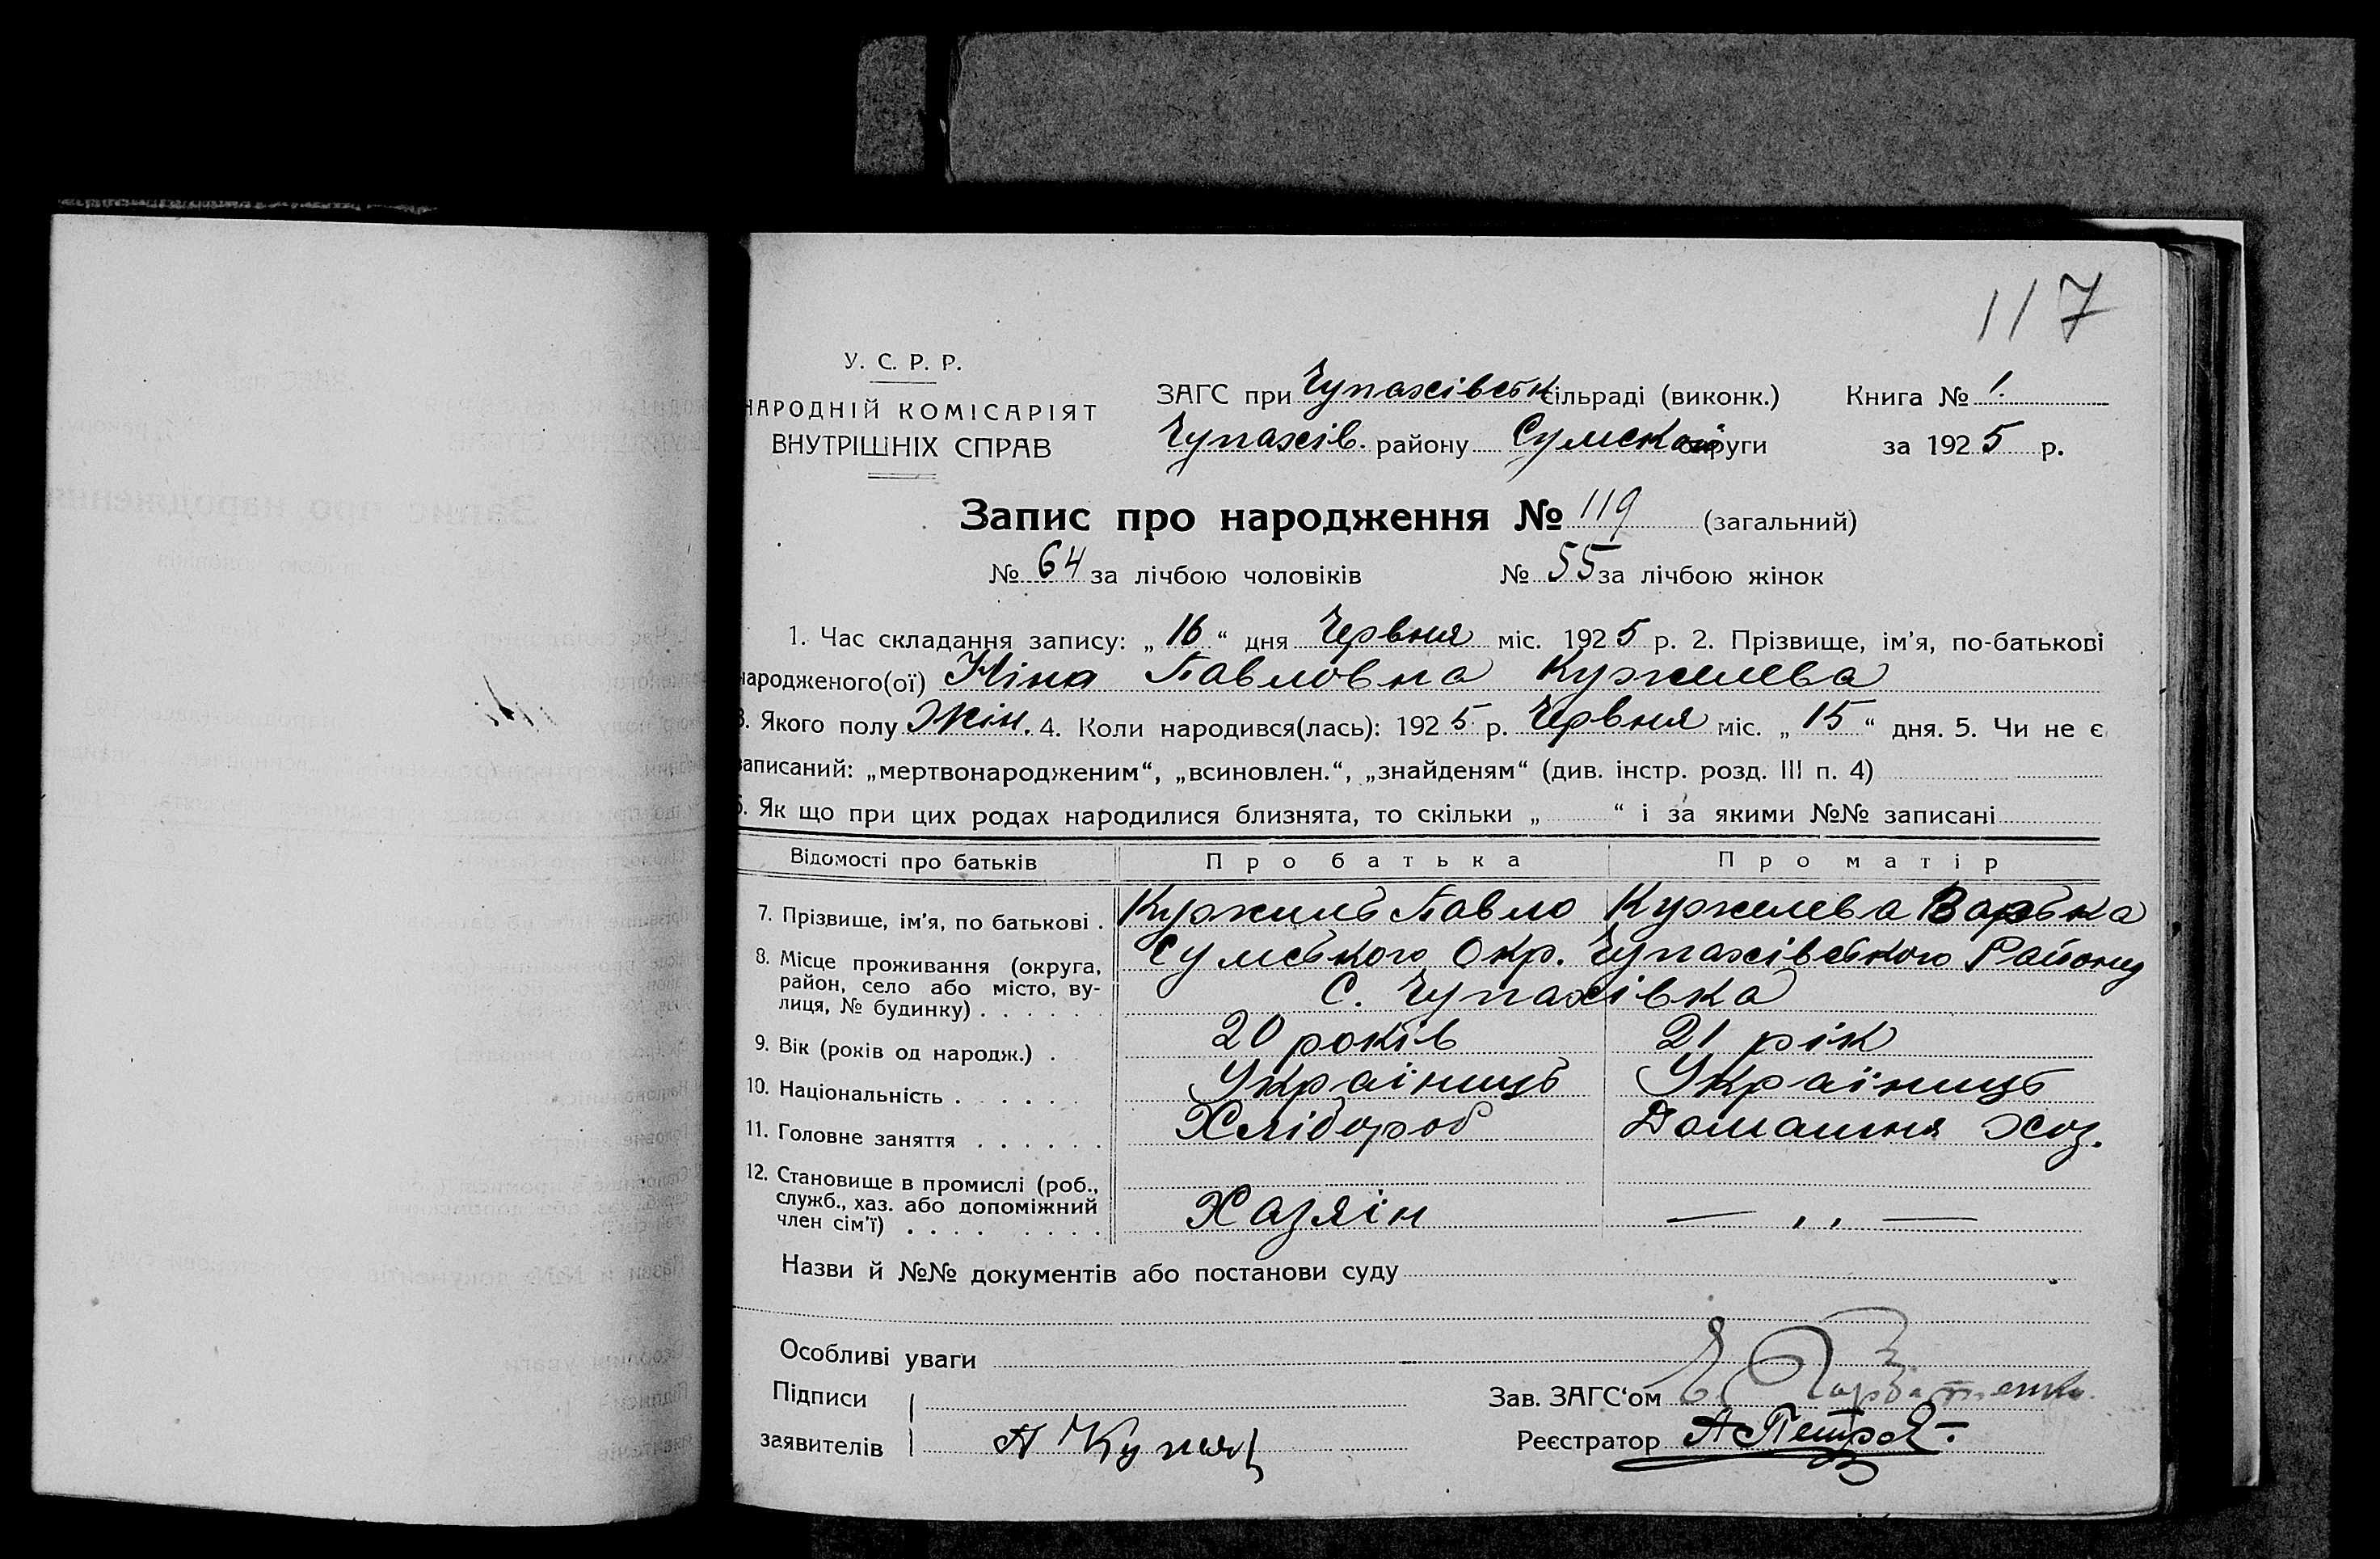 117
У. С. Р. Р.
НАРОДНІЙ КОМІСАРІЯТ
ВНУТРІШНІХ СПРАВ
ЗАГС при Чупахівськ сільраді (виконк.) Книга № 1.
Чупахів. району Сумской округи за 1925 р.
Запис про народження № 119 (загальний)
№ 64 за лічбою чоловіків № 55 за лічбою жінок
1. Час складання запису: „16“ дня Червня міс. 1925 р. 2. Прізвище, ім’я, по-батькові
народженого(ої) Ніна Павловна Кужелева
3. Якого полу Жін. 4. Коли народився(лась): 1925 р. Червня міс. „15“ дня. 5. Чи не є
записаний: „мертвонародженим“, „всиновлен.“, „знайденям“ (див. інстр. розд. III п. 4)
6. Як що при цих родах народилися близнята, то скільки „ “ і за якими №№ записані
Відомості про батьків Про батька Про матір
7. Прізвище, ім’я, по батькові . Кужиль Павло Кужелева Варька
8. Місце проживання (округа, район, село або місто, вулиця, № будинку) . . . . . . Сумського Окр. Чупахівського Району
С. Чупахівка
9. Вік (років од народж.) . 20 років 21 рік
10. Національність . . . . . . Украінець Україниць
11. Головне заняття . . . . . . Хлібороб Домашня хоз.
12. Становище в промислі (роб., служб., хаз. або допоміжний член сім’ї) . . . . . . . . Хазяін — „ —
Назви й №№ документів або постанови суду
Особливі уваги
Підписи
Зав. ЗАГС‘ом
заявителів
Реєстратор А Петров